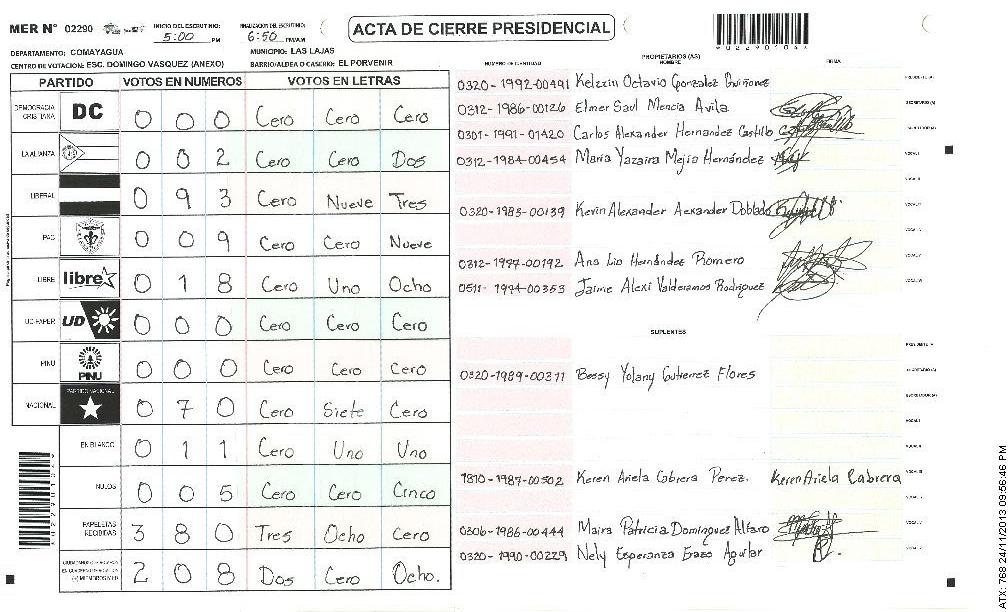 MER N° 02290 INICIO DEL ESCRUTINIO: 5:00 PM FINALIZACION DEL ESCRUTINIO: 6:50 PM/AM ACTA DE CIERRE PRESIDENCIAL
DEPARTAMENTO: COMAYAGUA MUNICIPIO: LAS LAJAS
CENTRO DE VOTACION: ESC. DOMINGO VASQUEZ (ANEXO) BARRIO/ALDEA O CASERIO: EL PORVENIR
PARTIDO VOTOS EN NUMEROS VOTOS EN LETRAS
DEMOCRACIA CRISTIANA DC 0 0 0 Cero Cero Cero
LA ALIANZA 0 0 2 Cero Cero Dos
LIBERAL 0 9 3 Cero Nueve Tres
PAC 0 0 9 Cero Cero Nueve
LIBRE libre 0 1 8 Cero Uno Ocho
UD-FAPER UD 0 0 0 Cero Cero Cero
PINU PINU 0 0 0 Cero Cero Cero
NACIONAL PARTIDO NACIONAL 0 7 0 Cero Siete Cero
EN BLANCO 0 1 1 Cero Uno Uno
NULOS 0 0 5 Cero Cero Cinco
PAPELETAS RECIBIDAS 3 8 0 Tres Ocho Cero
(+) MIEMBROS MER 2 0 8 Dos Cero Ocho.
PROPIETARIOS (AS)
NUMERO DE IDENTIDAD NOMBRE FIRMA
0320-1992-00491 Kelzzin Octavio Gonzalez Quiñonez
0312-1986-00126 Elmer Saul Mencia Avila
0301-1991-01420 Carlos Alexander Hernandez Castillo
0312-1984-00454 Maria Yazaira Mejia Hernández
0320-1985-00139 Kevin Alexander Aexander Doblado
0312-1997-00192 Ana Lia Hernández Romero
0511-1994-00353 Jaime Alexi Valderamos Rodriguez
SUPLENTES
0320-1989-00311 Bessy Yolany Gutierrez Flores
1810-1987-00502 Keren Ariela Cabrera Perez. Keren Ariela Cabrera
0306-1986-00444 Maira Patricia Dominguez Alfaro
0320-1990-00229 Nely Esperanza Erazo Aguilar
ATX: 768 24/11/2013 09:56:46 PM